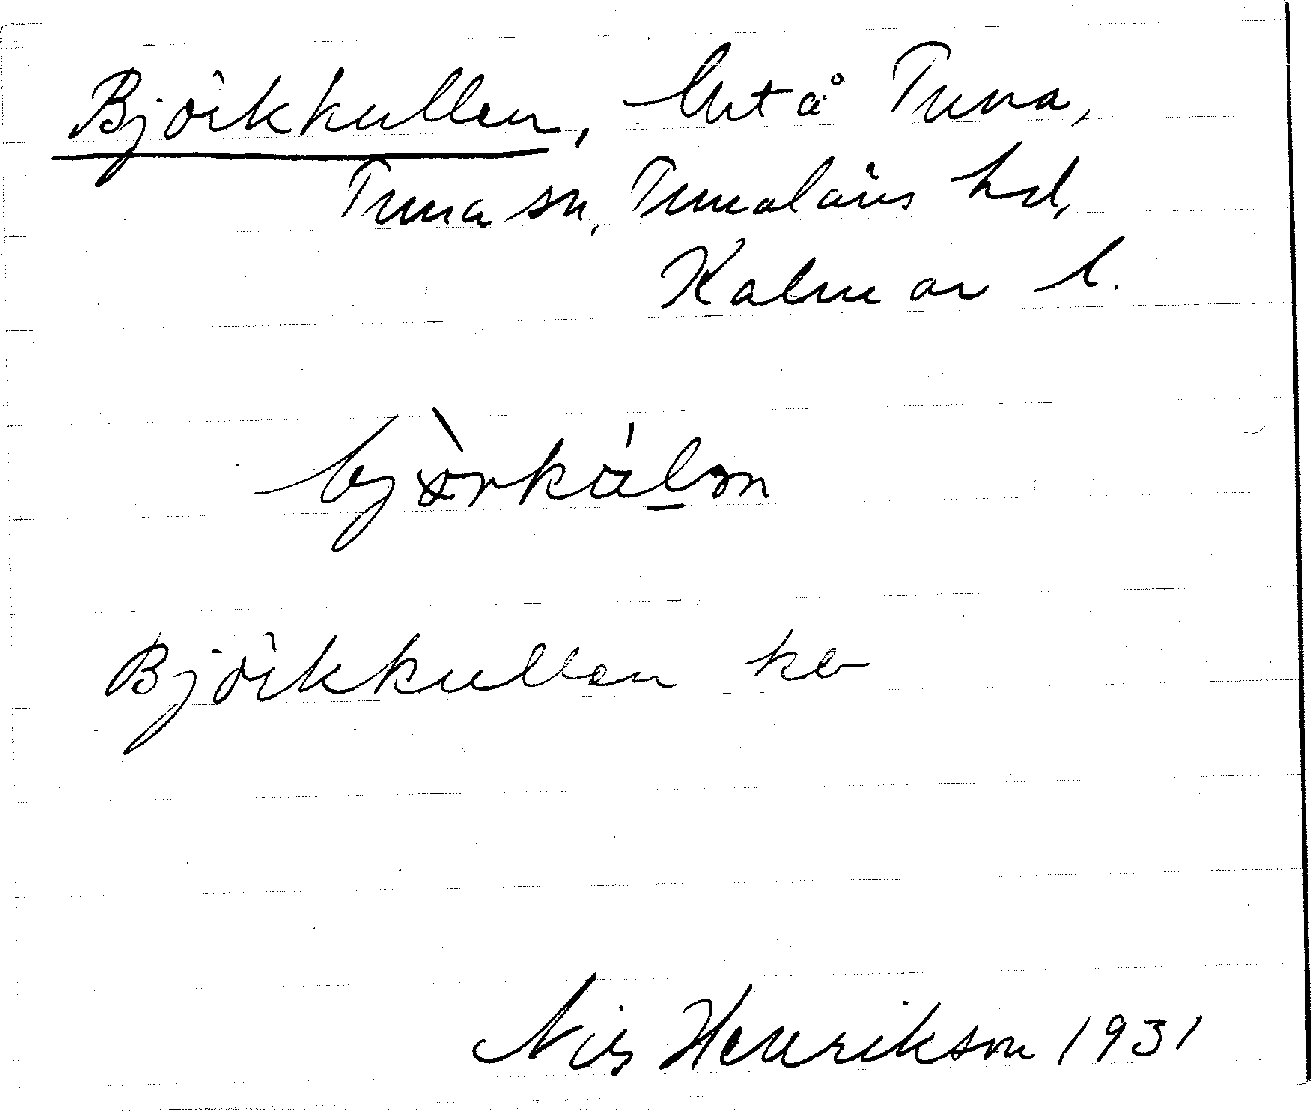 Björkkullen, lht å Tuna,
Tuna sn, Tunaläns hd,
Kalmar l.
Björkkullen kb
Nils Henrikson 1931